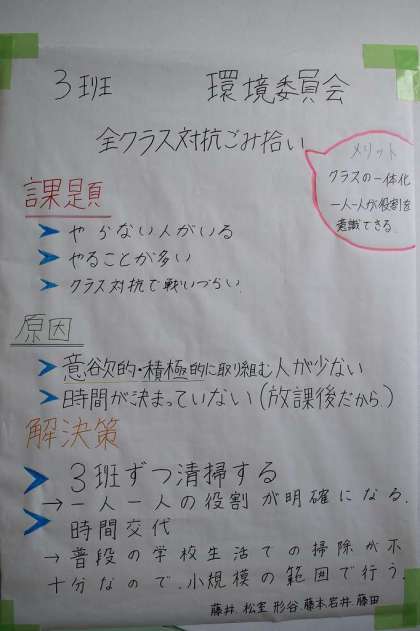 3班 環境委員会
全クラス対抗ごみ拾い
メリット
クラスの一体化
一人一人が役割を
意識できる。
課題
やらない人がいる
やることが多い
クラス対抗で戦いづらい
原因
意欲的・積極的に取り組む人が少ない
時間が決まっていない(放課後だから)
解決策
3班ずつ清掃する
→一人一人の役割が明確になる。
時間交代
→普段の学校生活での掃除が不
十分なので、小規模の範囲で行う。
藤井 松室 形谷 藤本 岩井 藤田